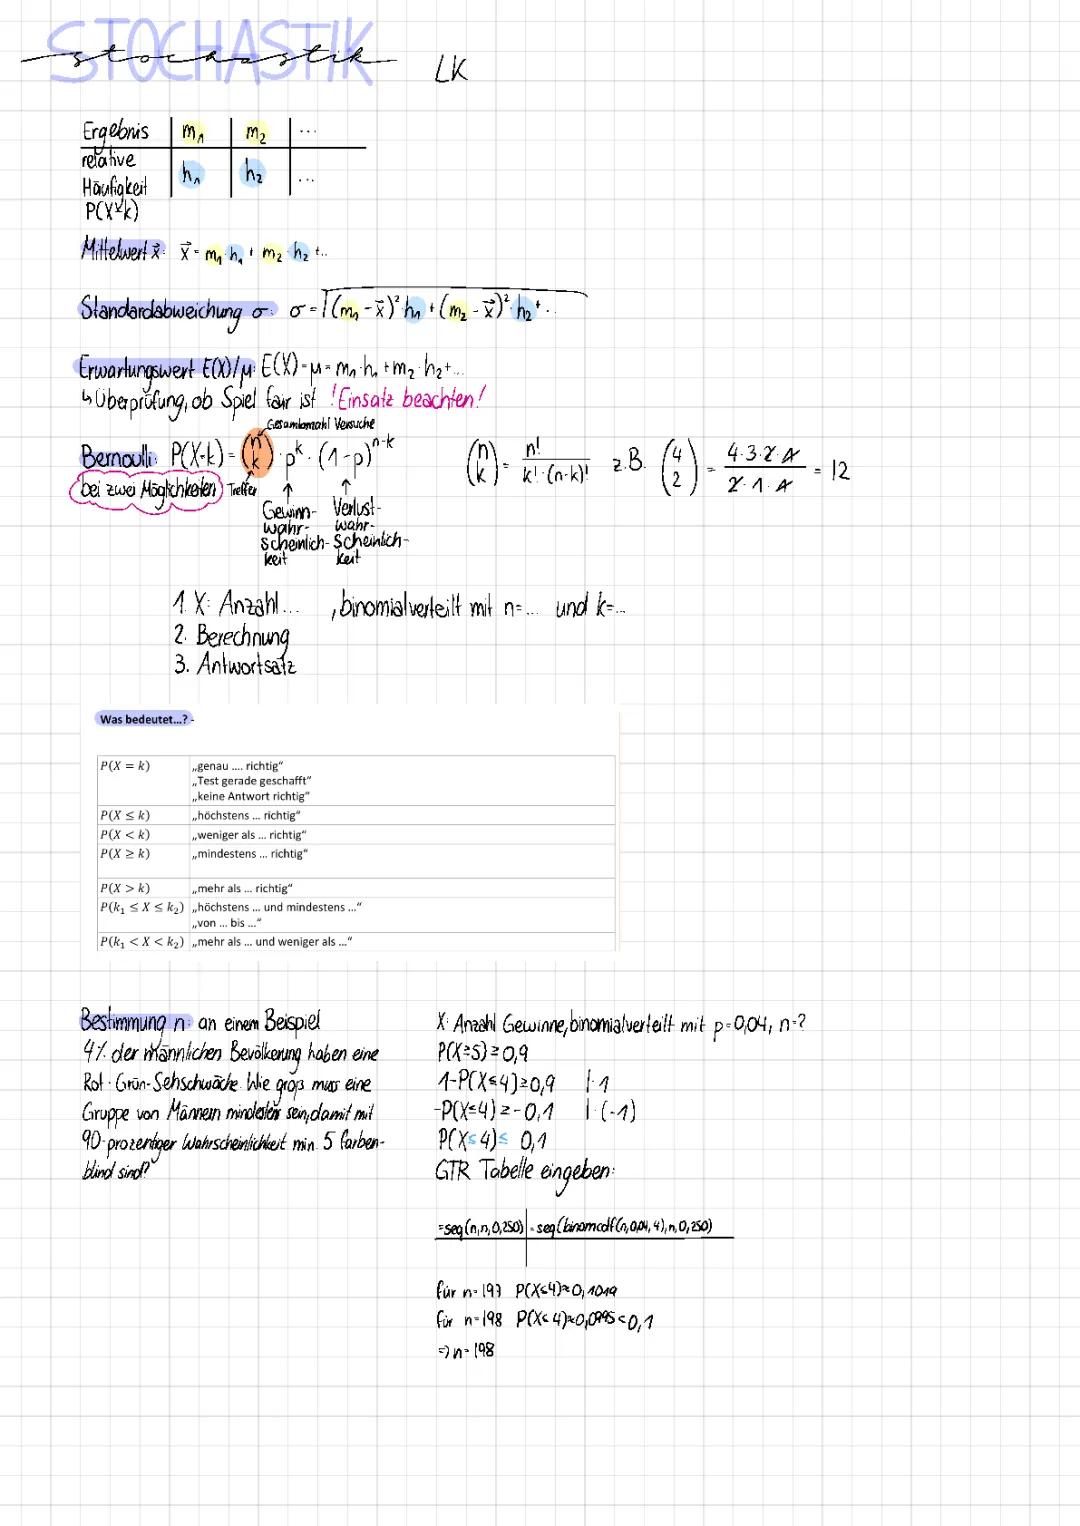 STOCHASTIK
stochastik LK
Ergebnis m₁ m₂ ...
relative
Häufigkeit h₁ h₂ ...
P(X=k)
Mittelwert x⃗: x⃗ = m₁·h₁ + m₂·h₂ + ..
Standardabweichung σ: σ = √((m₁-x⃗)²·h₁ + (m₂-x⃗)²·h₂ + ..
Erwartungswert E(X)/μ: E(X)=μ= m₁·h₁ + m₂·h₂+...
↳ Überprüfung, ob Spiel fair ist !Einsatz beachten!
Gesamtanzahl Versuche
Bernoulli: P(X=k) = (n k) · p^k · (1-p)^(n-k) (n k) = n! / k!·(n-k)! z.B. (4 2) = 4·3·2·1 / 2·1·1 = 12
bei zwei Möglichkeiten Treffer ↑ ↑
Gewinn- Verlust-
wahr- wahr-
scheinlich- scheinlich-
keit keit
1. X: Anzahl... , binomialverteilt mit n=... und k=...
2. Berechnung
3. Antwortsatz
Was bedeutet...? -
P(X = k) „genau .... richtig“
„Test gerade geschafft“
„keine Antwort richtig“
P(X ≤ k) „höchstens ... richtig“
P(X < k) „weniger als ... richtig“
P(X ≥ k) „mindestens ... richtig“
P(X > k) „mehr als ... richtig“
P(k₁ ≤ X ≤ k₂) „höchstens ... und mindestens ...“
„von ... bis ...“
P(k₁ < X < k₂) „mehr als ... und weniger als ...“
Bestimmung n: an einem Beispiel
4% der männlichen Bevölkerung haben eine
Rot-Grün-Sehschwäche. Wie groß muss eine
Gruppe von Männern mindestens sein, damit mit
90-prozentiger Wahrscheinlichkeit min. 5 farben-
blind sind?
X: Anzahl Gewinne, binomialverteilt mit p=0,04, n=?
P(X≥5) ≥ 0,9
1-P(X≤4) ≥ 0,9 |-1
-P(X≤4) ≥ -0,1 |·(-1)
P(X≤4) ≤ 0,1
GTR Tabelle eingeben:
=seq(n,n,0,250) =seq(binomcdf(n,0,04,4),n,0,250)
für n=197 P(X≤4)≈0,1019
für n=198 P(X≤4)≈0,0995<0,1
=> n=198